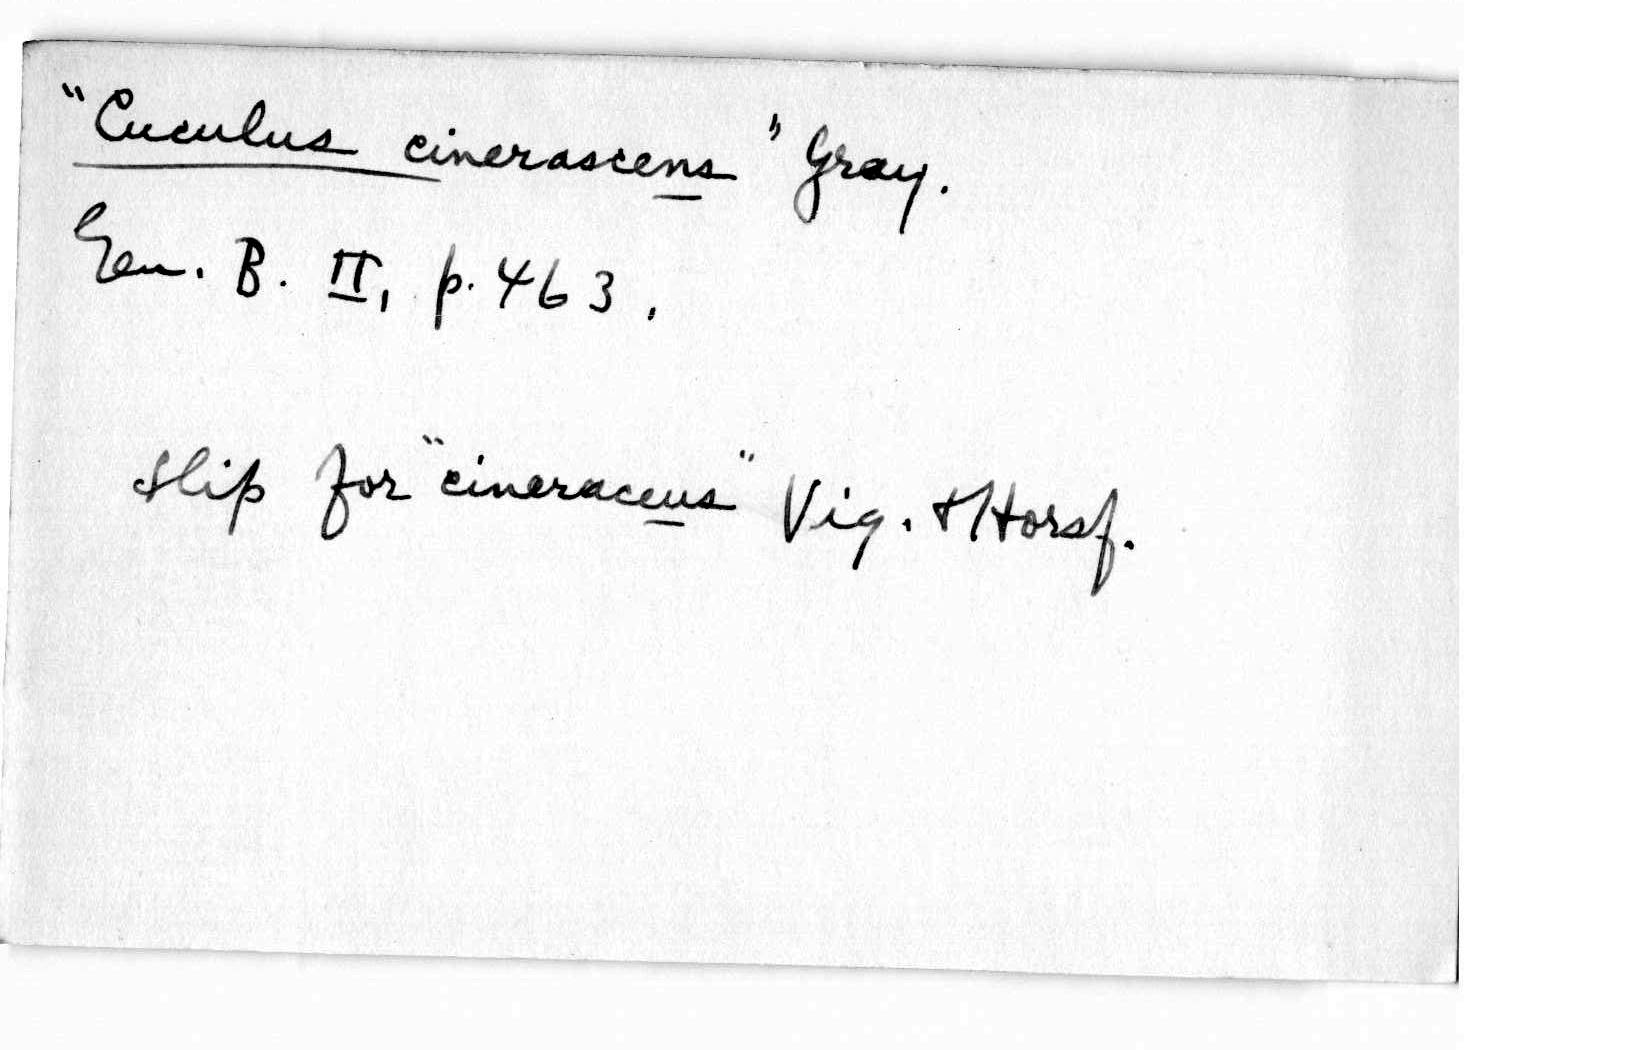 "Cuculus cinerascens" Gray.
Gen. B. II, p. 463.
slip for "cineraceus" Vig. & Horsf.